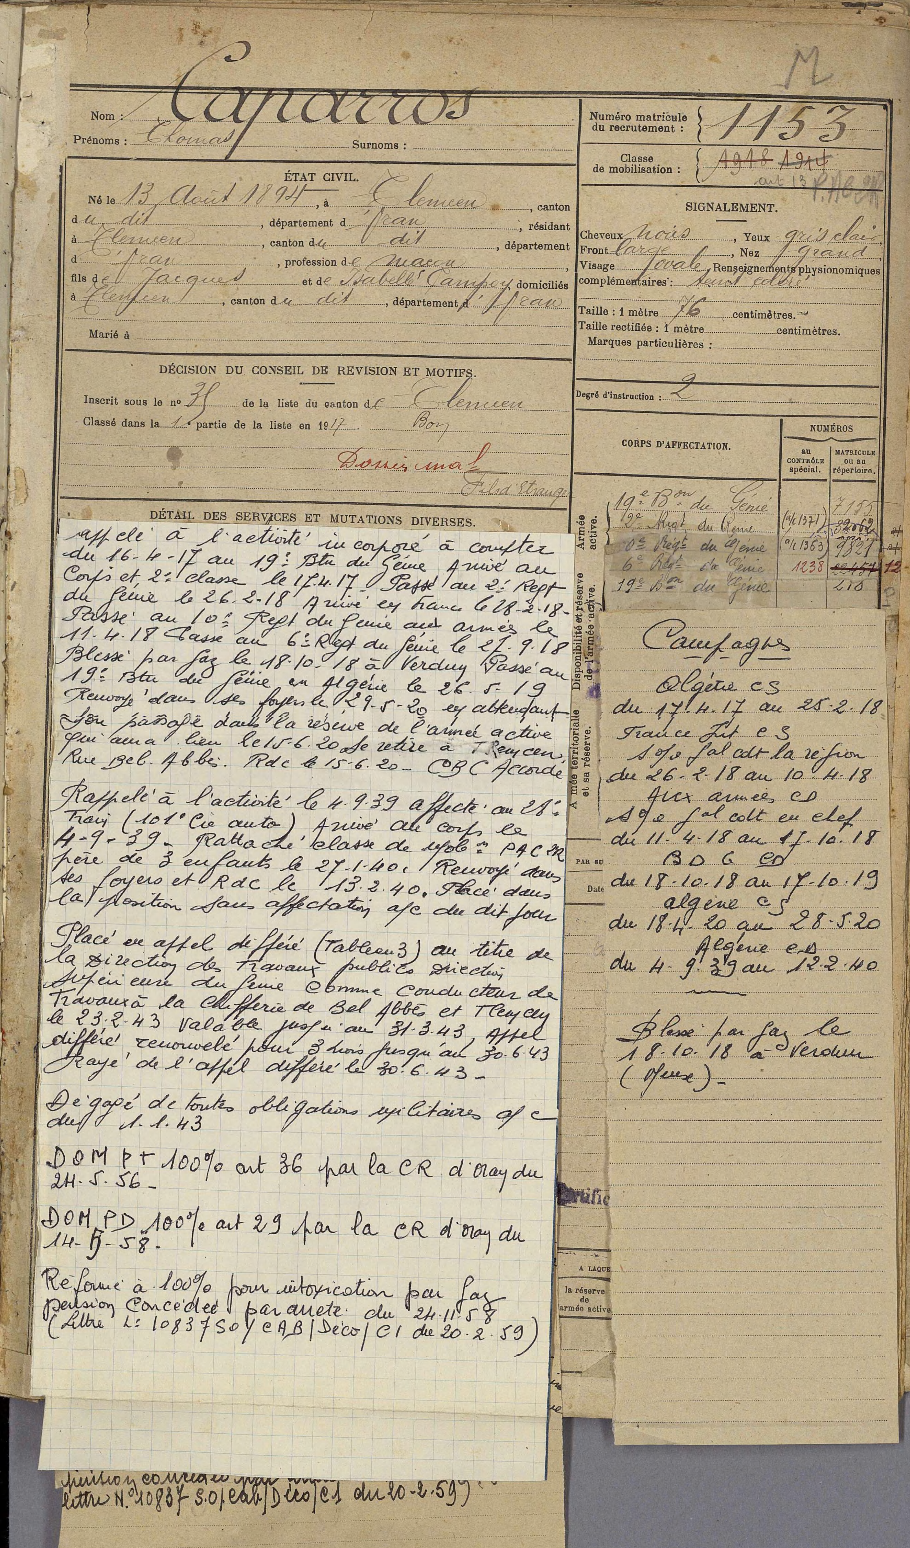 M
Nom : Caparros
Prénoms : Thomas Surnoms :
Numéro matricule du recrutement : 1153
Classe de mobilisation : 1918 1914
art 13
ÉTAT CIVIL.
Né le 13 Août 1894, à Tlemcen, canton
du dit, département d'Oran, résidant
à Tlemcen, canton du dit, département
d'Oran, profession de maçon,
fils de Jacques et de Isabelle, domiciliés
à Tlemcen, canton du dit, département d'Oran
Marié à
SIGNALEMENT.
Cheveux noirs, Yeux gris clair
Front large, Nez grand
Visage ovale, Renseignements physionomiques
complémentaires :
Taille : 1 mètre 76 centimètres.
Taille rectifiée : 1 mètre centimètres.
Marques particulières :
Degré d'instruction : 2
DÉCISION DU CONSEIL DE REVISION ET MOTIFS.
Inscrit sous le n° 35 de la liste du canton de Tlemcen
Classé dans la 1 partie de la liste en 1917 Bon
CORPS D'AFFECTATION.
NUMÉROS
au CONTRÔLE spécial.
MATRICULE ou au répertoire.
Armée active.
19e Bon du Génie 7155
Régt du Génie
Régt du Génie
6e Régt du Génie 1238
19e Bon du Génie
Disponibilité et réserve de l'armée active.
A mée territoriale et sa réserve.
DÉTAIL DES SERVICES ET MUTATIONS DIVERSES.
appelé à l'activité incorporé à compter
du 16-4-17 au 19e Btn du Génie Arrivé au
Corps et 2e classe le 17.4.17 Passé au 2e Regt
du Génie le 26.2.18 Arrivé en France le 28-2-18-
Passé au 10e Regt du Génie aux armées le
11.4.18 Passé au 6e Regt du Génie le 27.9.18
Blessé par gaz le 18.10.18 à Verdun Passé au
19e Btn du Génie en Algérie le 26.5.19
Renvoyé dans ses foyers le 29-5-20 en attendant
son passage dans la réserve de l'armée active
qui aura lieu le 15-6.20 Se retire à Tlemcen
Rue Bel Abbès. Rdc le 15-6.20 - CBC Accordé
Rappelé à l'activité le 4.9.39 affecté au 28e
Train (101e Cie auto) Arrivé au corps le
4-9-39 - Rattaché classe de mob
père de 3 enfants le 27.1.40. Renvoyé dans
ses foyers et Rdc le 13.2.40. Placé dans
la position sans affectation a/c du dit jour
Placé en appel différé (Tableau 3) au titre de
la Direction des Travaux publics Direction
Supérieure du Génie comme conducteur de
Travaux à la Chefferie de Bel Abbès et Tlemcen
le 23.2.43 Valable jusqu'au 31.3.43, Appel
différé renouvelé pour 3 mois jusqu'au 30.6.43
Rayé de l'appel différé le 30.6.43 -
Dégagé de toutes obligations militaires a/c
du 1.1.43
DOM PT 100% art 36 par la CR d'Oran du
24.5.56 -
DOM PD 100% art 29 par la CR d'Oran du
58.
Réformé à 100% pour intoxication par gaz
pension concédée par arrêté du 24.11.58
(Lettre L: 10837 SO/CAB/Déco/C1 du 20.2.59)
Campagnes
Algérie CS
du 17.4.17 au 25.2.18
France CS
s/o Gal cdt la région
du 26-2-18 au 10.4.18
Aux armées CD
s/o Gal cdt en chef
du 11-4.18 au 17.10.18
B D G CD
du 18.10.18 au 17.10.19
algérie CS
du 18.4.20 au 28-5.20
Algérie CD
du 4-9.39 au 12.2.40
Blessé par gaz le
18.10.18 à Verdun
(Meuse) -
PAR SU
Date
A LAQUE
la réserve de armée active
lettre N° 10837 S.O/Cab/Déco/C1 du 20-2.59)